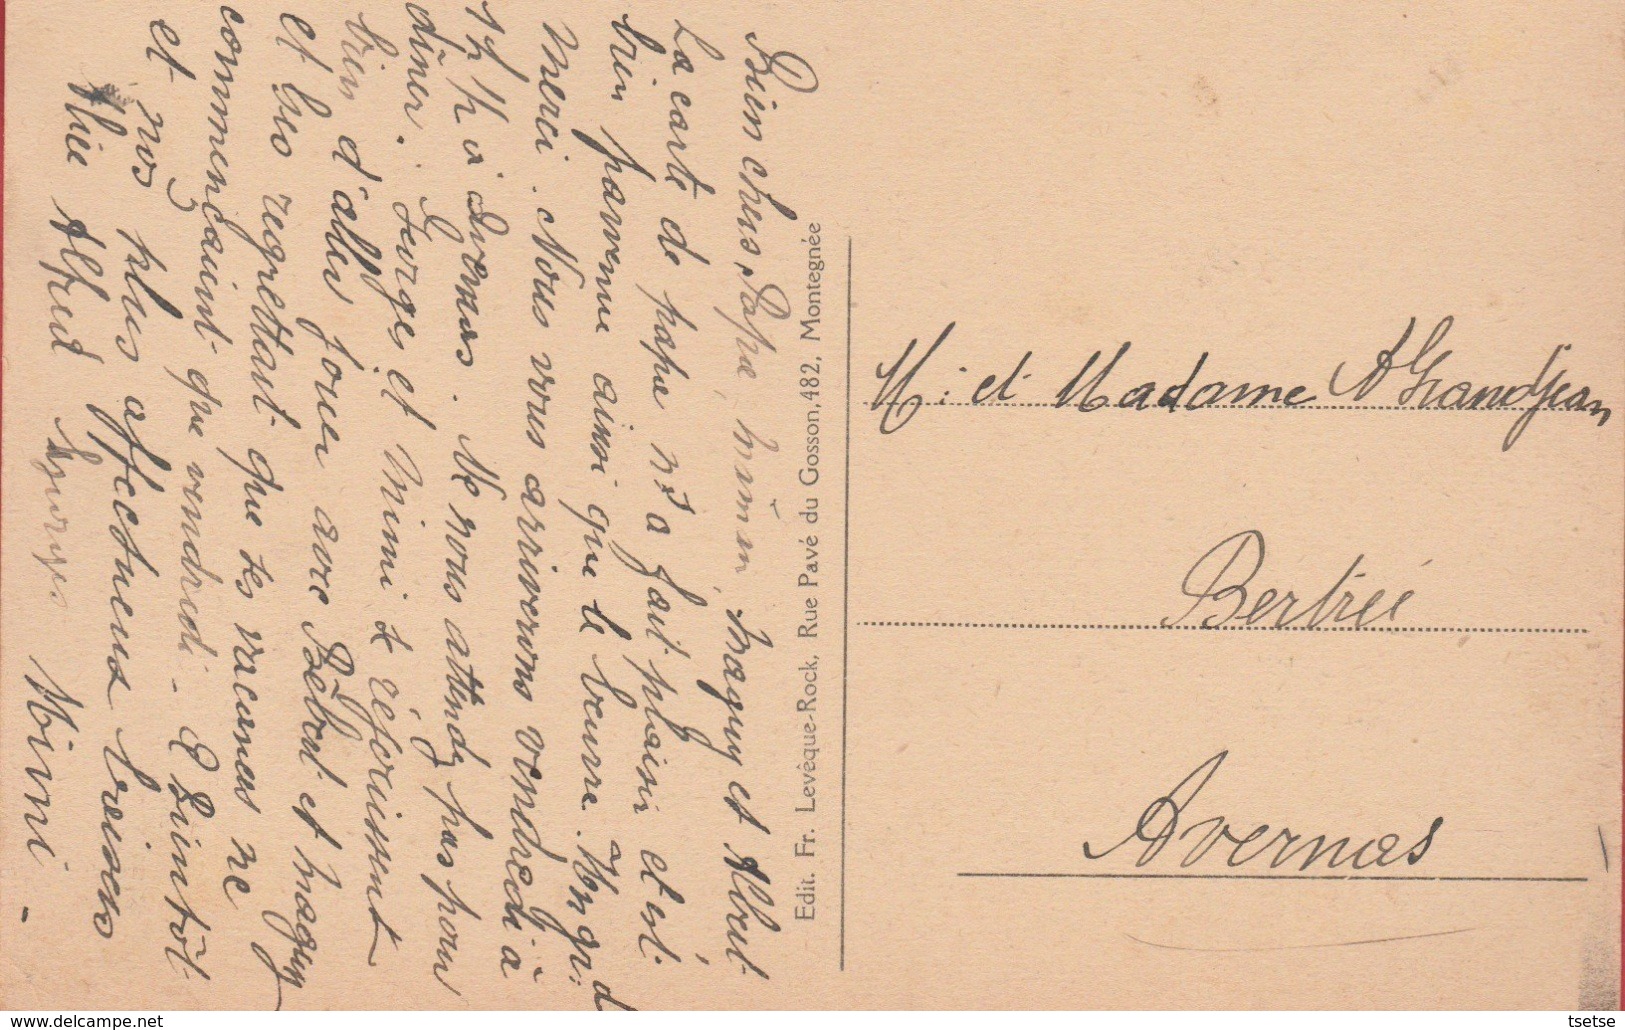 Bien chers Papa, maman, Maguy et Albert
La carte de papa ns a fait plaisir et est
bien parvenue ainsi que le beurre. Mn gd
merci. Nous vous arriverons vendredi à
h à Avernas. Ne nous attendez pas pour
dîner. George et Mimi se réjouissent
bien d'aller jouer avec Bébert et Maguy
et Geo regrettant que les vacances ne
commencaint que vendredi. A Bientôt
et nos plus affectueux baisers
Alfred Georges Mimi -
Edit. Fr. Levêque-Rock, Rue Pavé du Gosson, 482, Montegnée
M: et Madame A Grandjean
Bertrée
Avernas
www.delcampe.net
tsetse